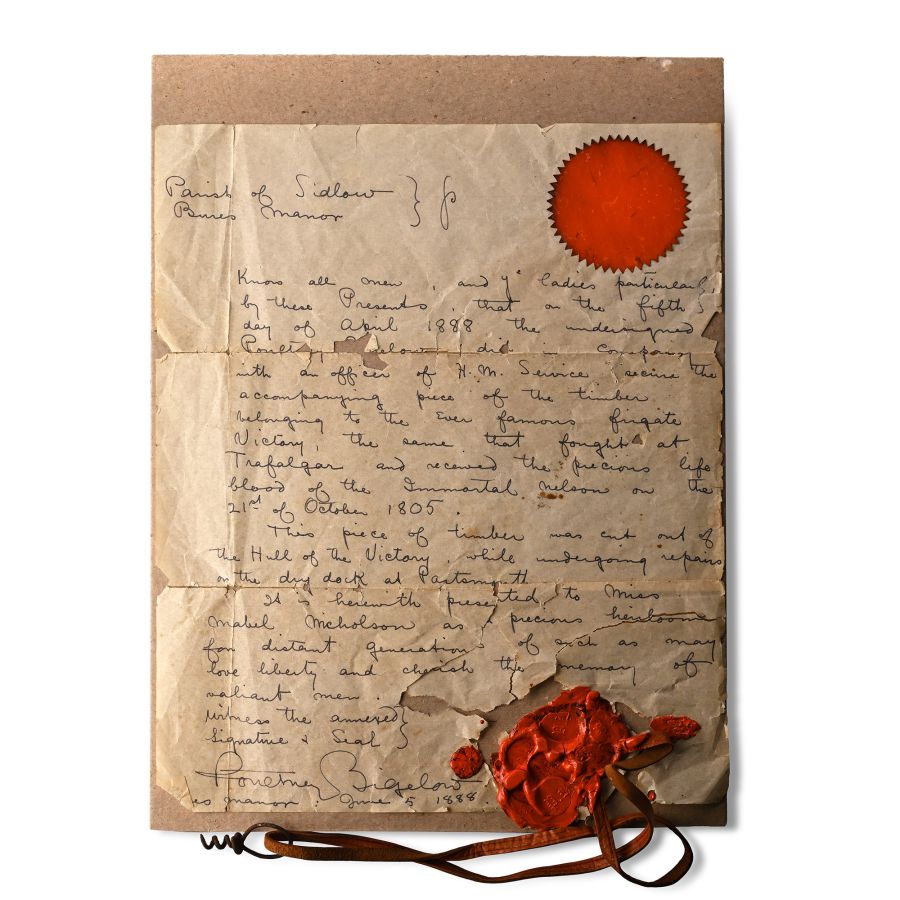 Parish of Sidlow } ss
Bures Manor
Know all men, and ye ladies particularly
by these Presents, that on the fifth }
day of April 1888 the undersigned
Poultney did in company
with an officer of H.M. Service secure the
accompanying piece of the timber
belonging to the Ever famous frigate
Victory, the same that fought at
Trafalgar and received the precious life
blood of the Immortal Nelson on the
21st of October 1805.
This piece of timber was cut out of
the Hull of the Victory while undergoing repairs
on the dry dock at Portsmouth
It is herewith presented to Miss
Mabel Nicholson as a precious heirloom
for distant generations of such as may
love liberty and cherish the memory of
valiant men.
witness the annexed }
Signature & Seal }
Poultney Bigelow
es manor. June 5 1888.